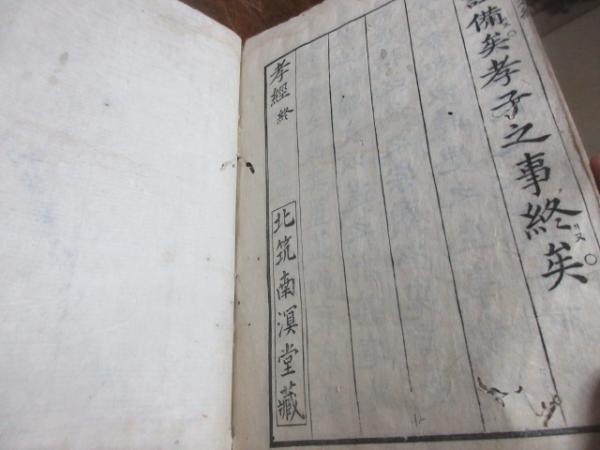 備矣。孝子之事終矣。
孝經終
北筑南溟堂藏